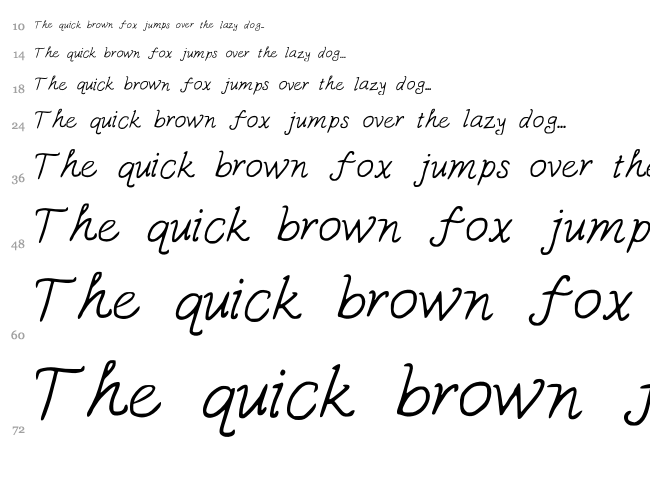 10 The quick brown fox jumps over the lazy dog...
14 The quick brown fox jumps over the lazy dog...
18 The quick brown fox jumps over the lazy dog...
24 The quick brown fox jumps over the lazy dog...
36 The quick brown fox jumps over the
48 The quick brown fox jump
60 The quick brown fox
72 The quick brown j